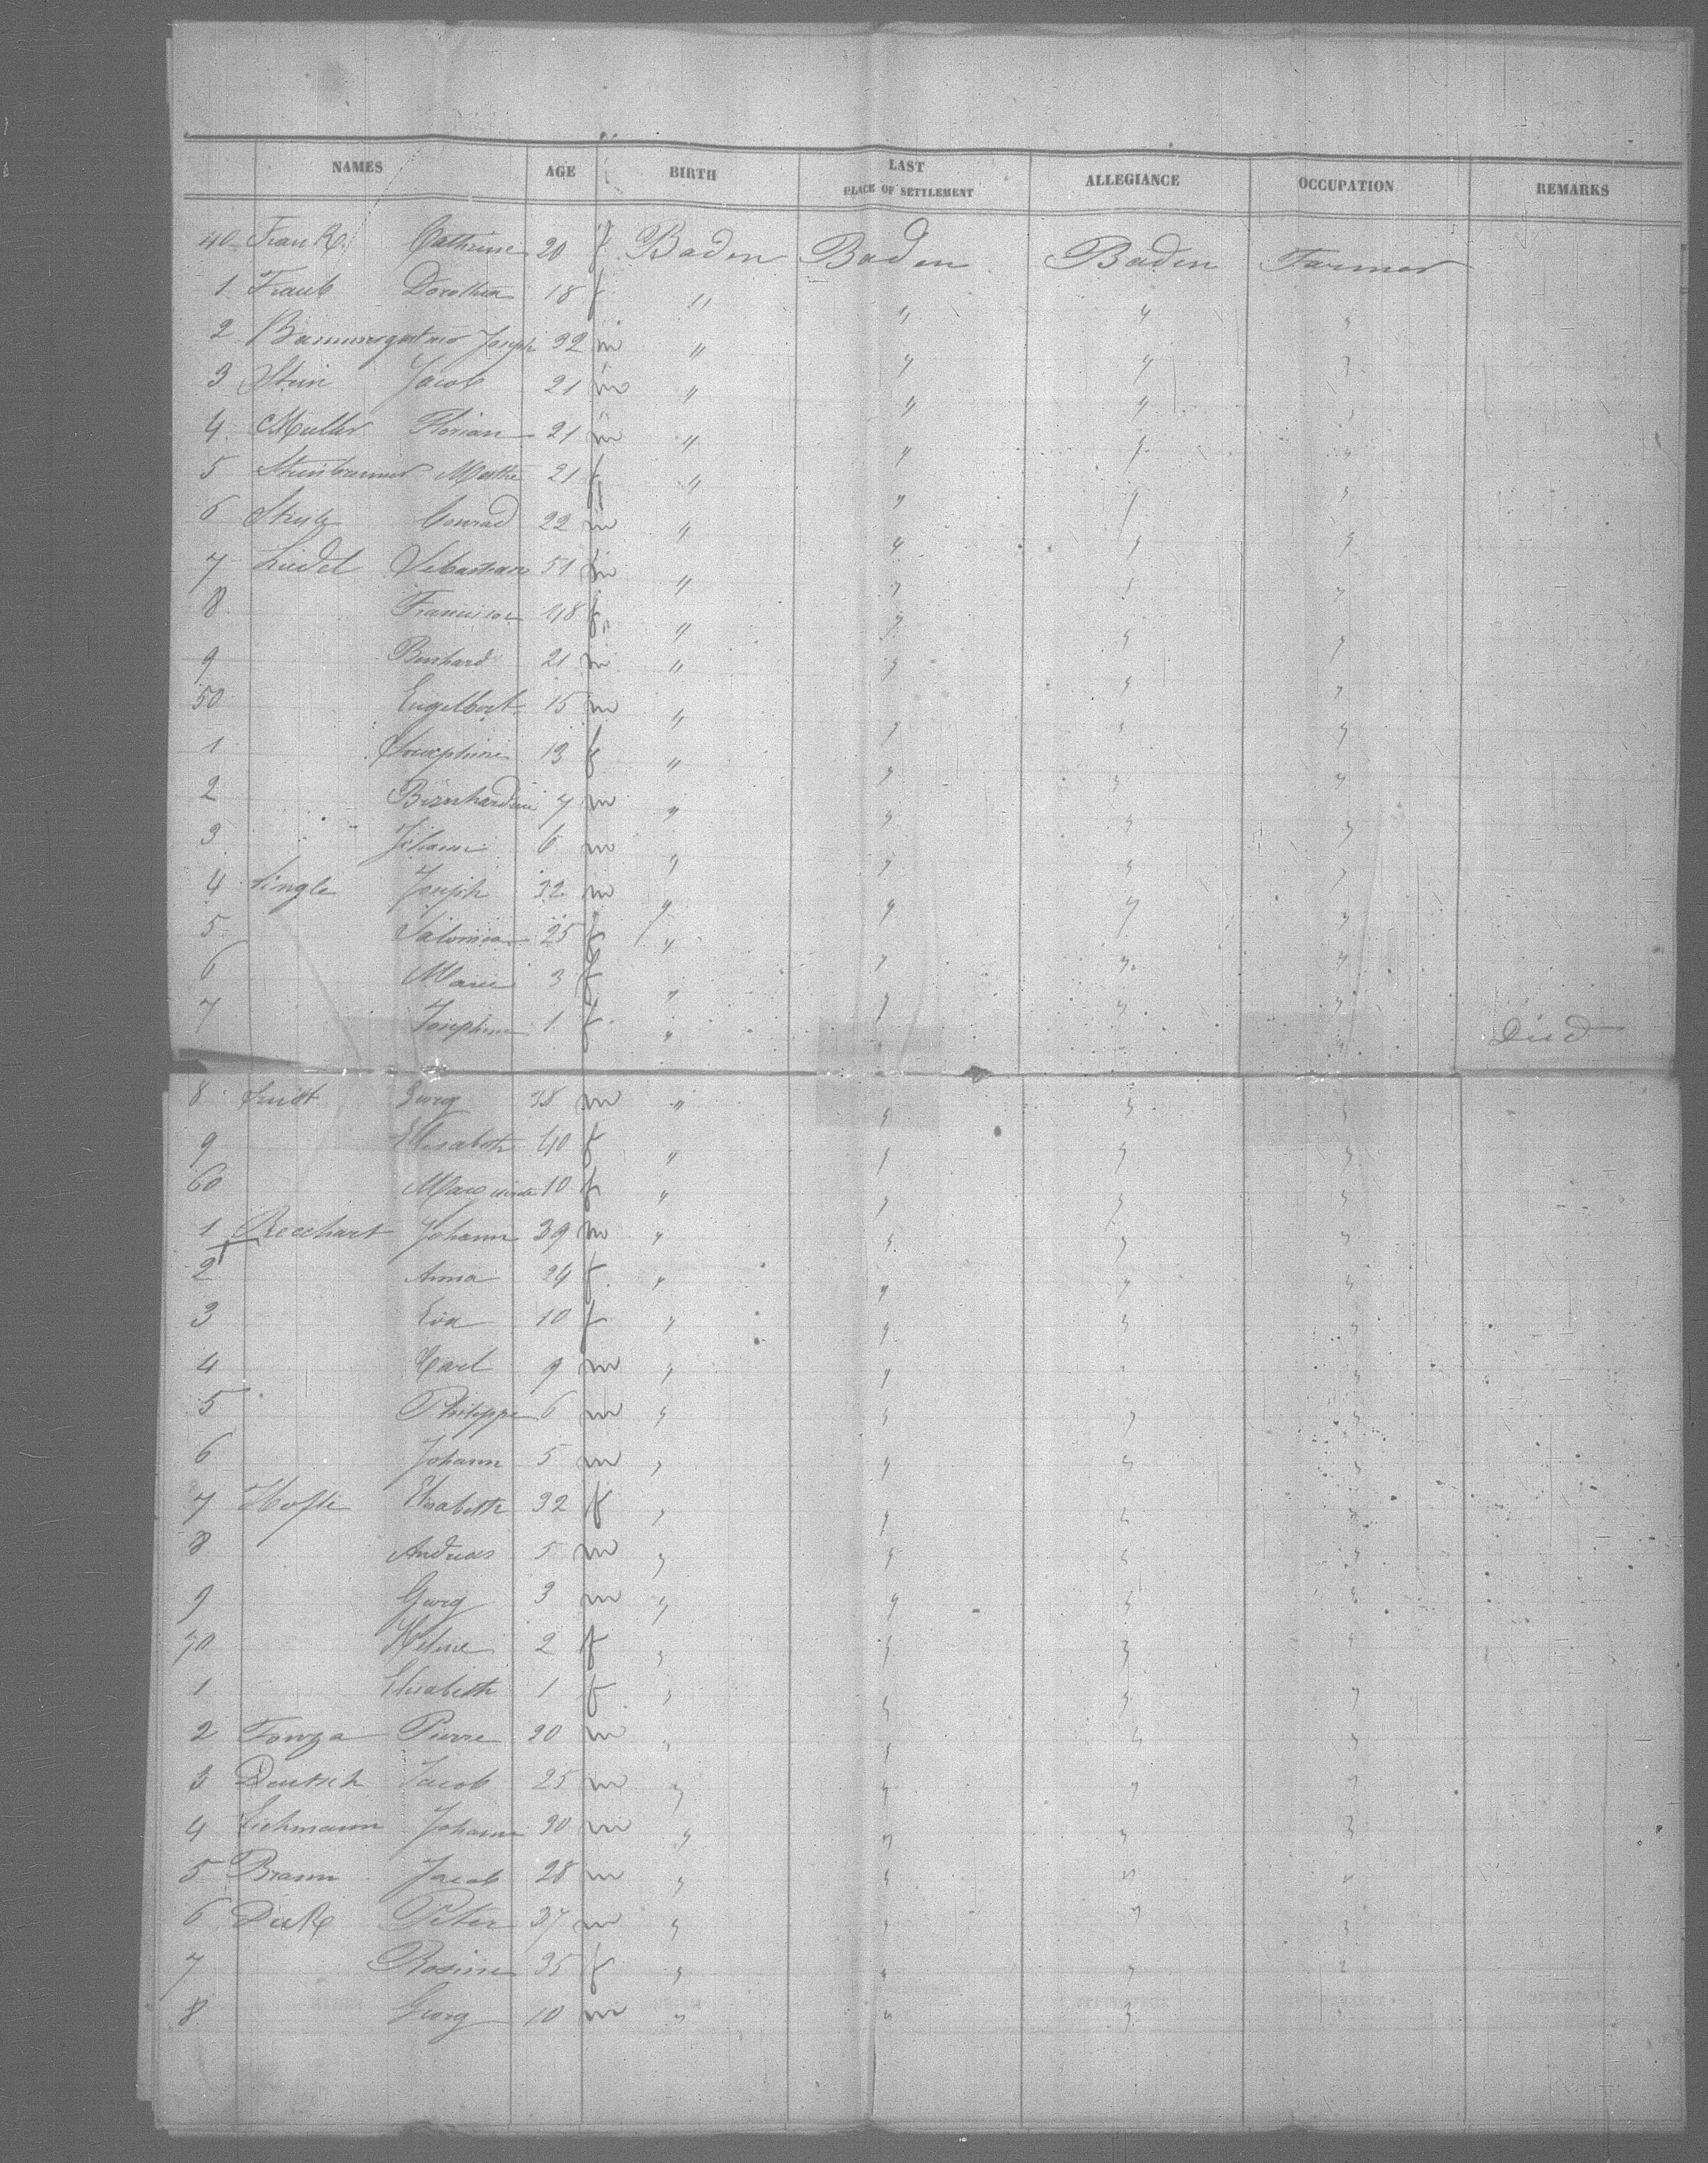 NAMES AGE BIRTH LAST PLACE OF SETTLEMENT ALLEGIANCE OCCUPATION REMARKS
40 Frank Cathrine 20 f Baden Baden Baden Farmer
1 Traub Dorothea 18 f " " " "
2 Baumgartner Joseph 32 m " " " "
3 Stein Jacob 21 m " " " "
4 Muller Florian 21 m " " " "
5 Steinbrunner Marthe 21 f " " " "
6 Conrad 22 m " " " "
7 Liedel Sebastian 51 m " " " "
8 Francisca 48 f " " " "
9 Bernhard 21 m " " " "
50 Engelbert 15 m " " " "
1 Josephine 13 f " " " "
2 Bernhardine 7 m " " " "
3 Johann 6 m " " " "
4 Single Joseph 32 m " " " "
5 Salomea 25 f " " " "
6 Marie 3 f " " " "
7 Josephine 1 f " " " " Died
8 Georg 38 m " " " "
9 Elisabeth 40 f " " " "
60 10 f " " " "
1 Johann 39 m " " " "
2 Anna 24 f " " " "
3 Eva 10 f " " " "
4 Carl 9 m " " " "
5 Philippe 6 m " " " "
6 Johann 5 m " " " "
7 Elisabeth 32 f " " " "
8 Andreas 5 m " " " "
9 Georg 3 m " " " "
70 Helene 2 f " " " "
1 Elisabeth 1 f " " " "
2 Pierre 20 m " " " "
3 Deutsch Jacob 25 m " " " "
4 Eichmann Johann 30 m " " " "
5 Braun Jacob 28 m " " " "
6 Dick Peter 37 m " " " "
7 Rosine 35 f " " " "
8 Georg 10 m " " " "